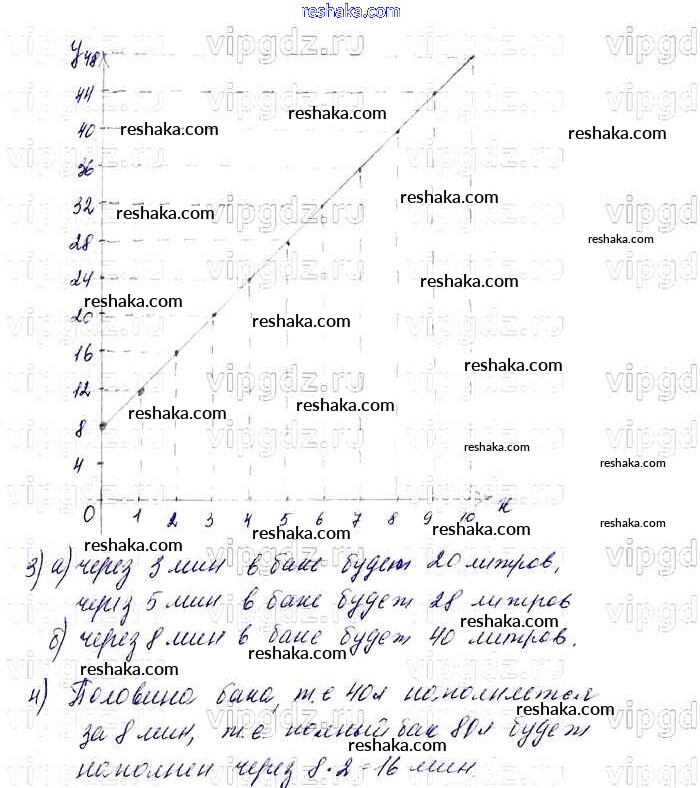 reshaka.com
y 48
44
40
36
32
28
24
20
16
12
8
4
0 1 2 3 4 5 6 7 8 9 10 x
3) а) через 3 мин в баке будет 20 литров,
через 5 мин в баке будет 28 литров
б) через 8 мин в баке будет 40 литров.
4) Половина бака, т.е 40л наполняется
за 8 мин, т.е полный бак 80л будет
наполнен через 8·2=16 мин.
vipgdz.ru
reshaka.com